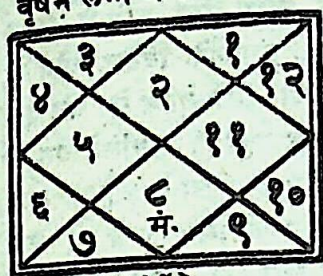 वृषभ
३ १
४ २ १२
५ ११
६ ८ १०
मं.
७ ९